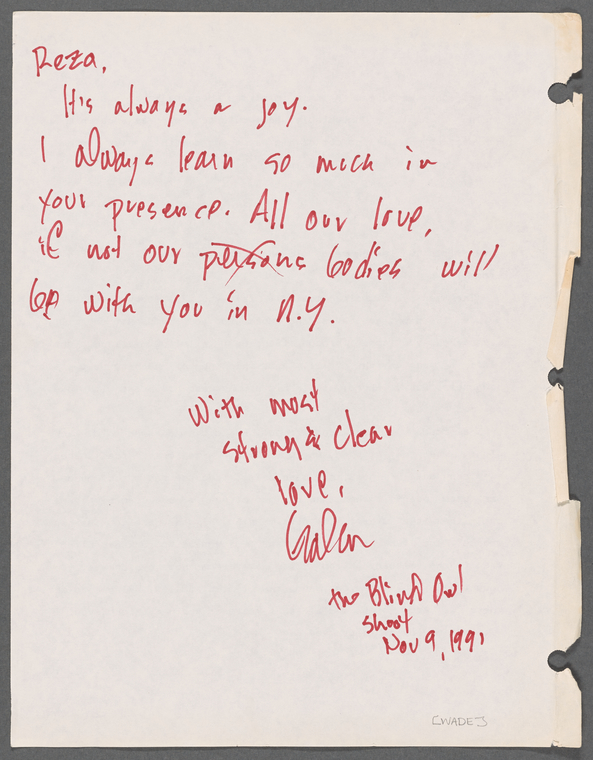 Reza,
It's always a joy.
I always learn so much in
your presence. All our love,
if not our persons bodies will
be with you in N.Y.
With most
strong & clear
love,
Galen
the Blind Owl
shoot
Nov 9, 1991
[WADE]